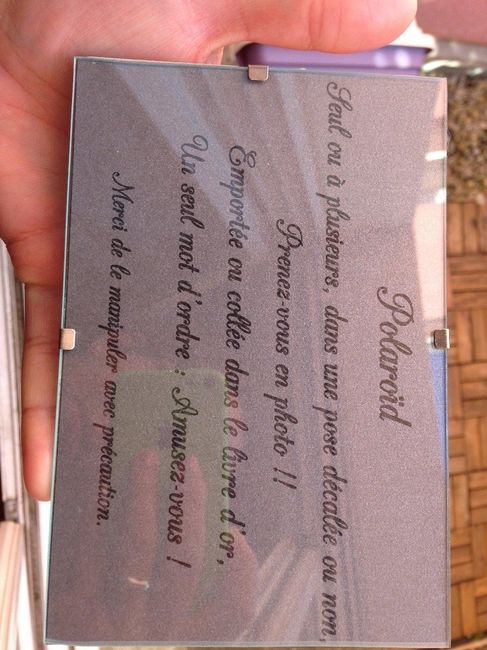 Polaroïd
Seul ou à plusieurs, dans une pose décalée ou non,
Prenez-vous en photo !!
Emportée ou collée dans le livre d'or,
Un seul mot d'ordre : Amusez-vous !
Merci de le manipuler avec précaution.